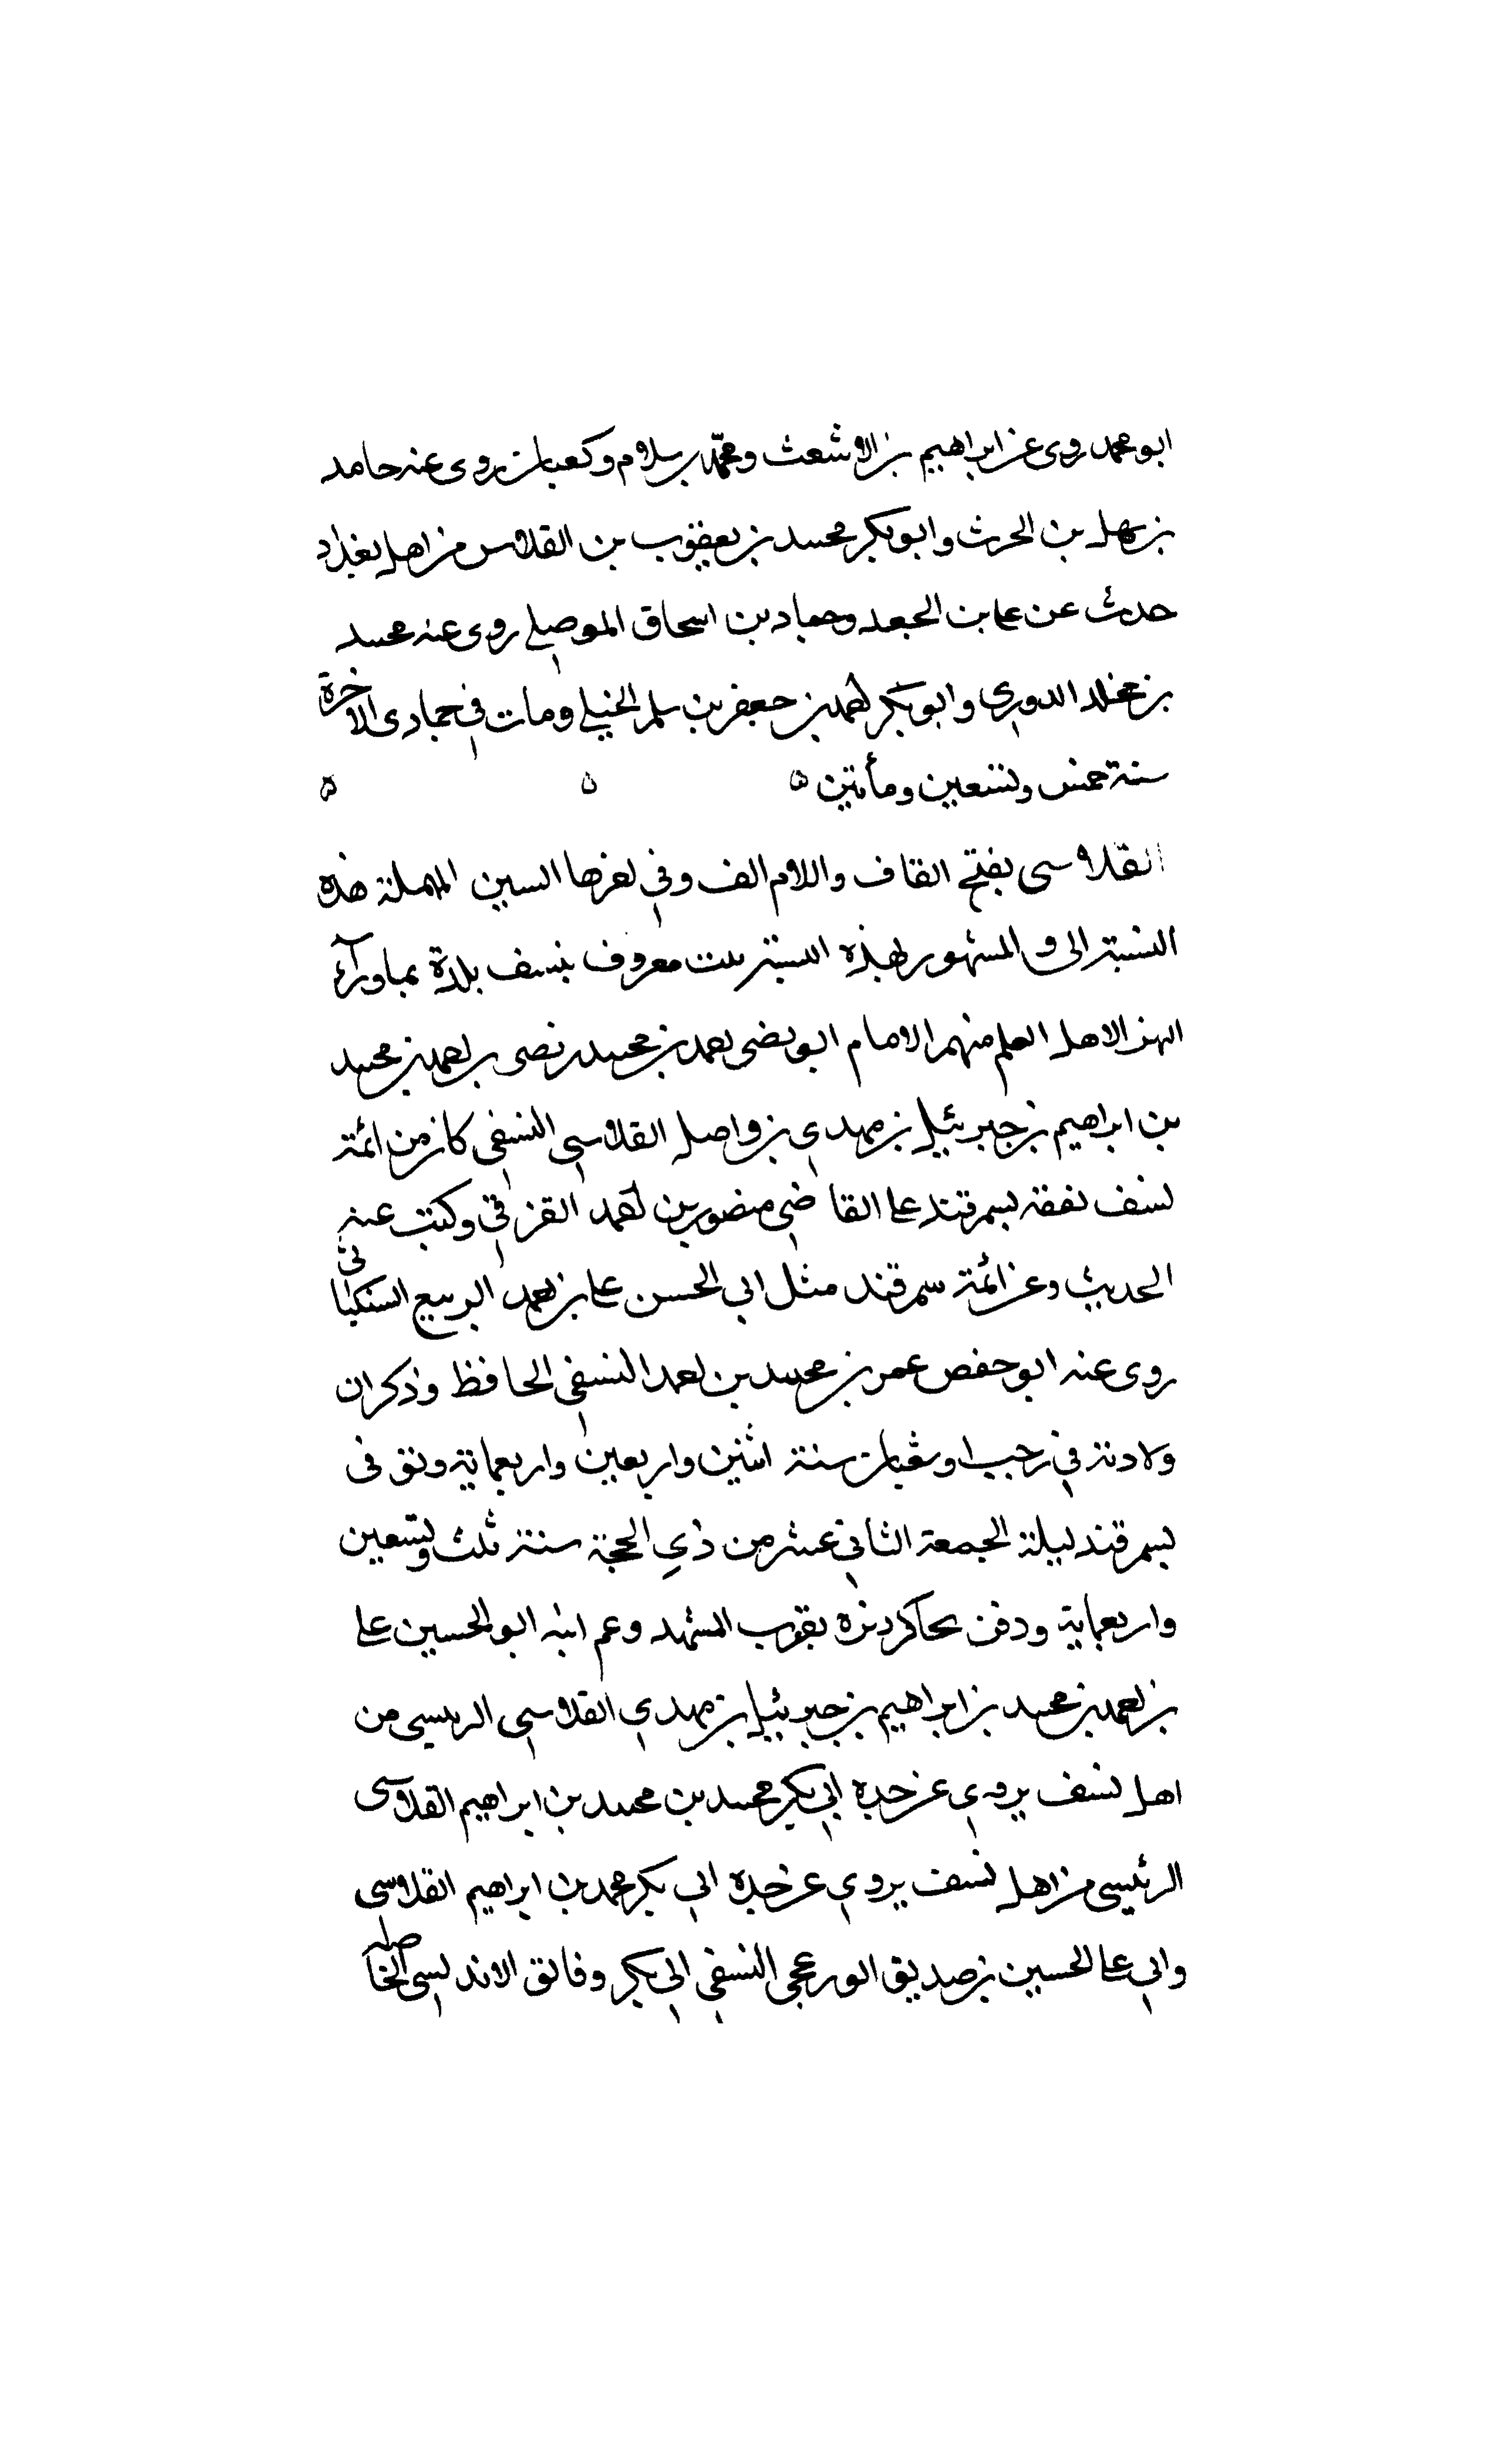 ابو محمد روى عن ابراهيم بن الاشعث ومحمّد بن سلام وكعبان روى عنه حامد
بن سهل بن الحرث وابو بكر محمد بن يعقوب بن القلاس من اهل بغداد
حدث عن على بن الجعد وحماد بن اسحاق الموصلي روى عنه محمد
بن مخلد الدوري وابو بكر احمد بن جعفر بن سلم الختلي ومات في جمادى الاخرة
سنة خمس وتسعين ومأتين ٥ ٥ ٥
القلاسى بفتح القاف واللام الف وفي اخرها السين المهملة هذه
النسبة الى و المشهور بهذه النسبة بيت معروف بنسف بلدة بماورآء
النهر الاهل العلم منهم الامام ابو نصر احمد بن محمد بن نصر بن احمد بن محمد
بن ابراهيم بن جبرئيل بن مهدي بن واصل القلاسي النسفي كان من ائمة
نسف تفقه بسمرقند على القاضي منصور بن احمد الغزقي وكتب عنه
الحديث وعن ائمة سمرقند مثل ابي الحسن على بن احمد الربيع السنكباثى
روى عنه ابو حفص عمر بن محمد بن احمد النسفي الحافظ وذكر ان
ولادته في رجب او شعبان سنة اثنين واربعين واربعماية وتوفى
بسمرقند ليلة الجمعة الثاني عشر من ذي الحجة سنة ثلث وتسعين
واربعماية ودفن بجاكرديزه بقرب المشهد وعم ابيه ابو الحسين على
بن احمد بن محمد بن ابراهيم بن جبرئيل بن مهدي القلاسي الرئيسى من
اهل نسف يروي عن جده ابي بكر محمد بن محمد بن ابراهيم القلاسى
الرئيسى من اهل نسف يروي عن جده ابي بكر محمد بن ابراهيم القلاسى
وابي على الحسين بن صديق الورعجى النسفي ابي بكر وفائق الاندلسى الخاصه